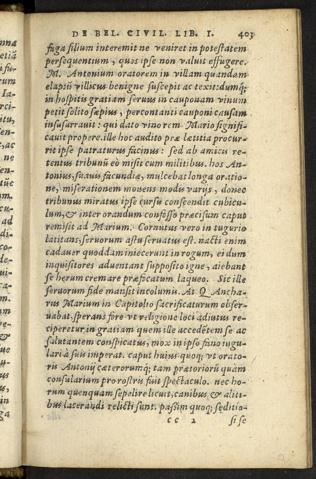 DE BEL. CIVIL. LIB. I. 403
fuga filium interemit ne veniret in potestatem
persequentium, quos ipse non valuit effugere.
M. Antonium oratorem in villam quandam
elapsũ villicus benigne suscepit ac texit: dumq́;
in hospitis gratiam seruus in cauponam vinum
petit solito sæpius, percontanti cauponi causam
insusurauit: qui dato vino rem Mario signifi-
cauit propere. ille hoc audito præ lætitia procur-
rit ipse patraturus facinus: sed ab amicis re-
tentus tribunũ eò misit cum militibus. hos An-
tonius, suauis facundiæ, mulcebat longa oratio-
ne, miserationem mouens modis varijs, donec
tribunus miratus ipse cursu conscendit cubicu-
lum, & inter orandum confosso præcisum caput
remisit ad Marium. Cornutus vero in tugurio
latitans, seruorum astu seruatus est. nacti enim
cadauer quoddam iniecerunt in rogum, ei dum
inquisitores aduentant supposito igne, aiebant
se herum cremare præficatum laqueo. Sic ille
seruorum fide mansit incolumis. At Q. Ancha-
rius Marium in Capitolio sacrificaturum obser-
uabat, sperans fore vt religione loci adiutus re-
ciperetur in gratiam quem ille accedētem se ac
salutantem conspicatus, mox in ipso fano iugu-
lari à suis imperat. caput huius quoq;, vt orato-
ris Antonij cæterorumq́; tam prætoriorũ quàm
consularium pro rostris fuit spectaculo. nec ho-
rum quenquam sepelire licuit, canibus & aliti-
bus lacerandi relicti sunt. passim quoq; seditio-
cc 2 si se